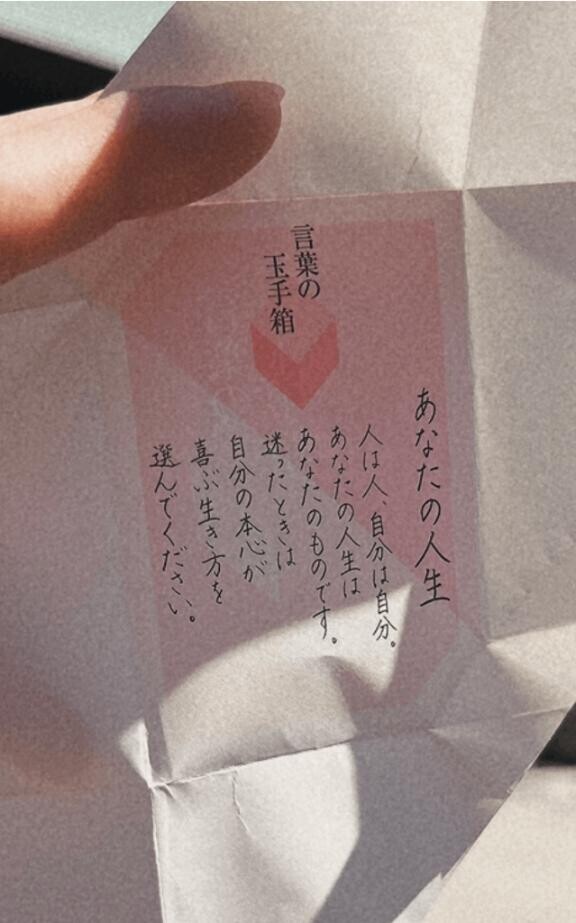 言葉の
玉手箱
あなたの人生
人は人、自分は自分。
あなたの人生は
あなたのものです。
迷ったときは
自分の本心が
喜ぶ生き方を
選んでください。